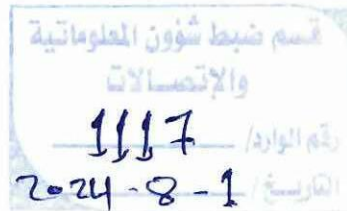 قسم ضبط شؤون المعلوماتية
والإتصالات
رقم الوارد/ 1117
التاريخ/ 2024-8-1